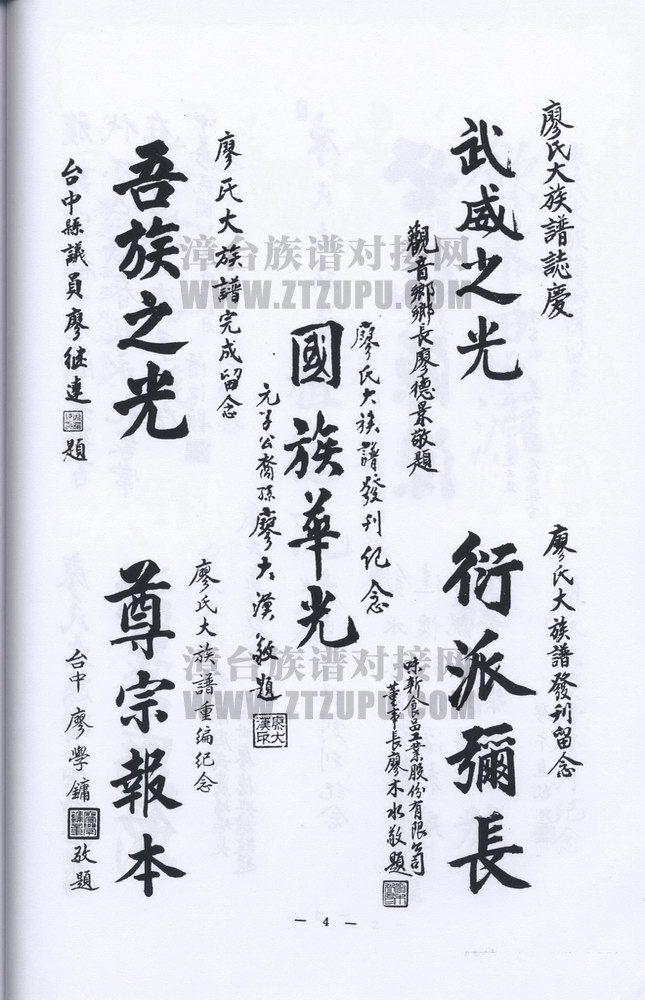 廖氏大族譜誌慶
武威之光
觀音鄉鄉長廖德景敬題
廖氏大族譜發刊留念
衍派彌長
味新食品工業股份有限公司
董事長廖木水敬題
廖氏大族譜發刊紀念
國族華光
元子公裔孫廖大漢敬題
廖大漢印
廖氏大族譜完成留念
吾族之光
台中縣議員廖继連
題
廖氏大族譜重编紀念
尊宗報本
台中 廖學鏞
敬題
漳台族谱对接网
WWW.ZTZUPU.COM
漳台族谱对接网
WWW.ZTZUPU.COM
— 4 —